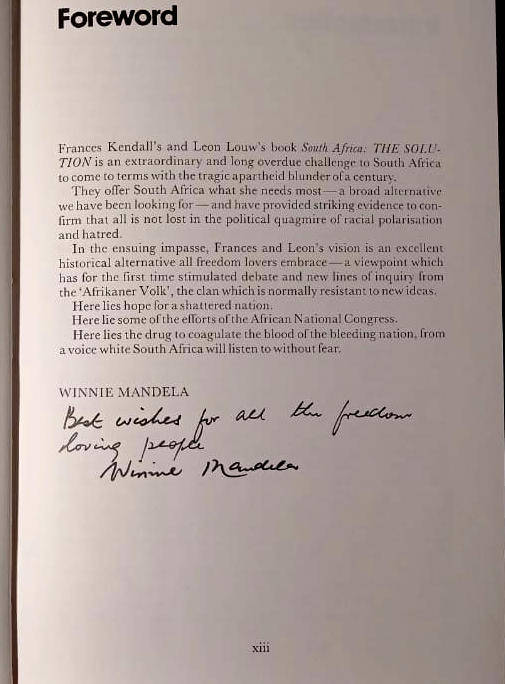 Foreword
Frances Kendall's and Leon Louw's book South Africa: THE SOLU-
TION is an extraordinary and long overdue challenge to South Africa
to come to terms with the tragic apartheid blunder of a century.
They offer South Africa what she needs most—a broad alternative
we have been looking for—and have provided striking evidence to con-
firm that all is not lost in the political quagmire of racial polarisation
and hatred.
In the ensuing impasse, Frances and Leon's vision is an excellent
historical alternative all freedom lovers embrace—a viewpoint which
has for the first time stimulated debate and new lines of inquiry from
the 'Afrikaner Volk', the clan which is normally resistant to new ideas.
Here lies hope for a shattered nation.
Here lie some of the efforts of the African National Congress.
Here lies the drug to coagulate the blood of the bleeding nation, from
a voice white South Africa will listen to without fear.
WINNIE MANDELA
Best wishes for all the freedom
loving people
Winnie Mandela
xiii